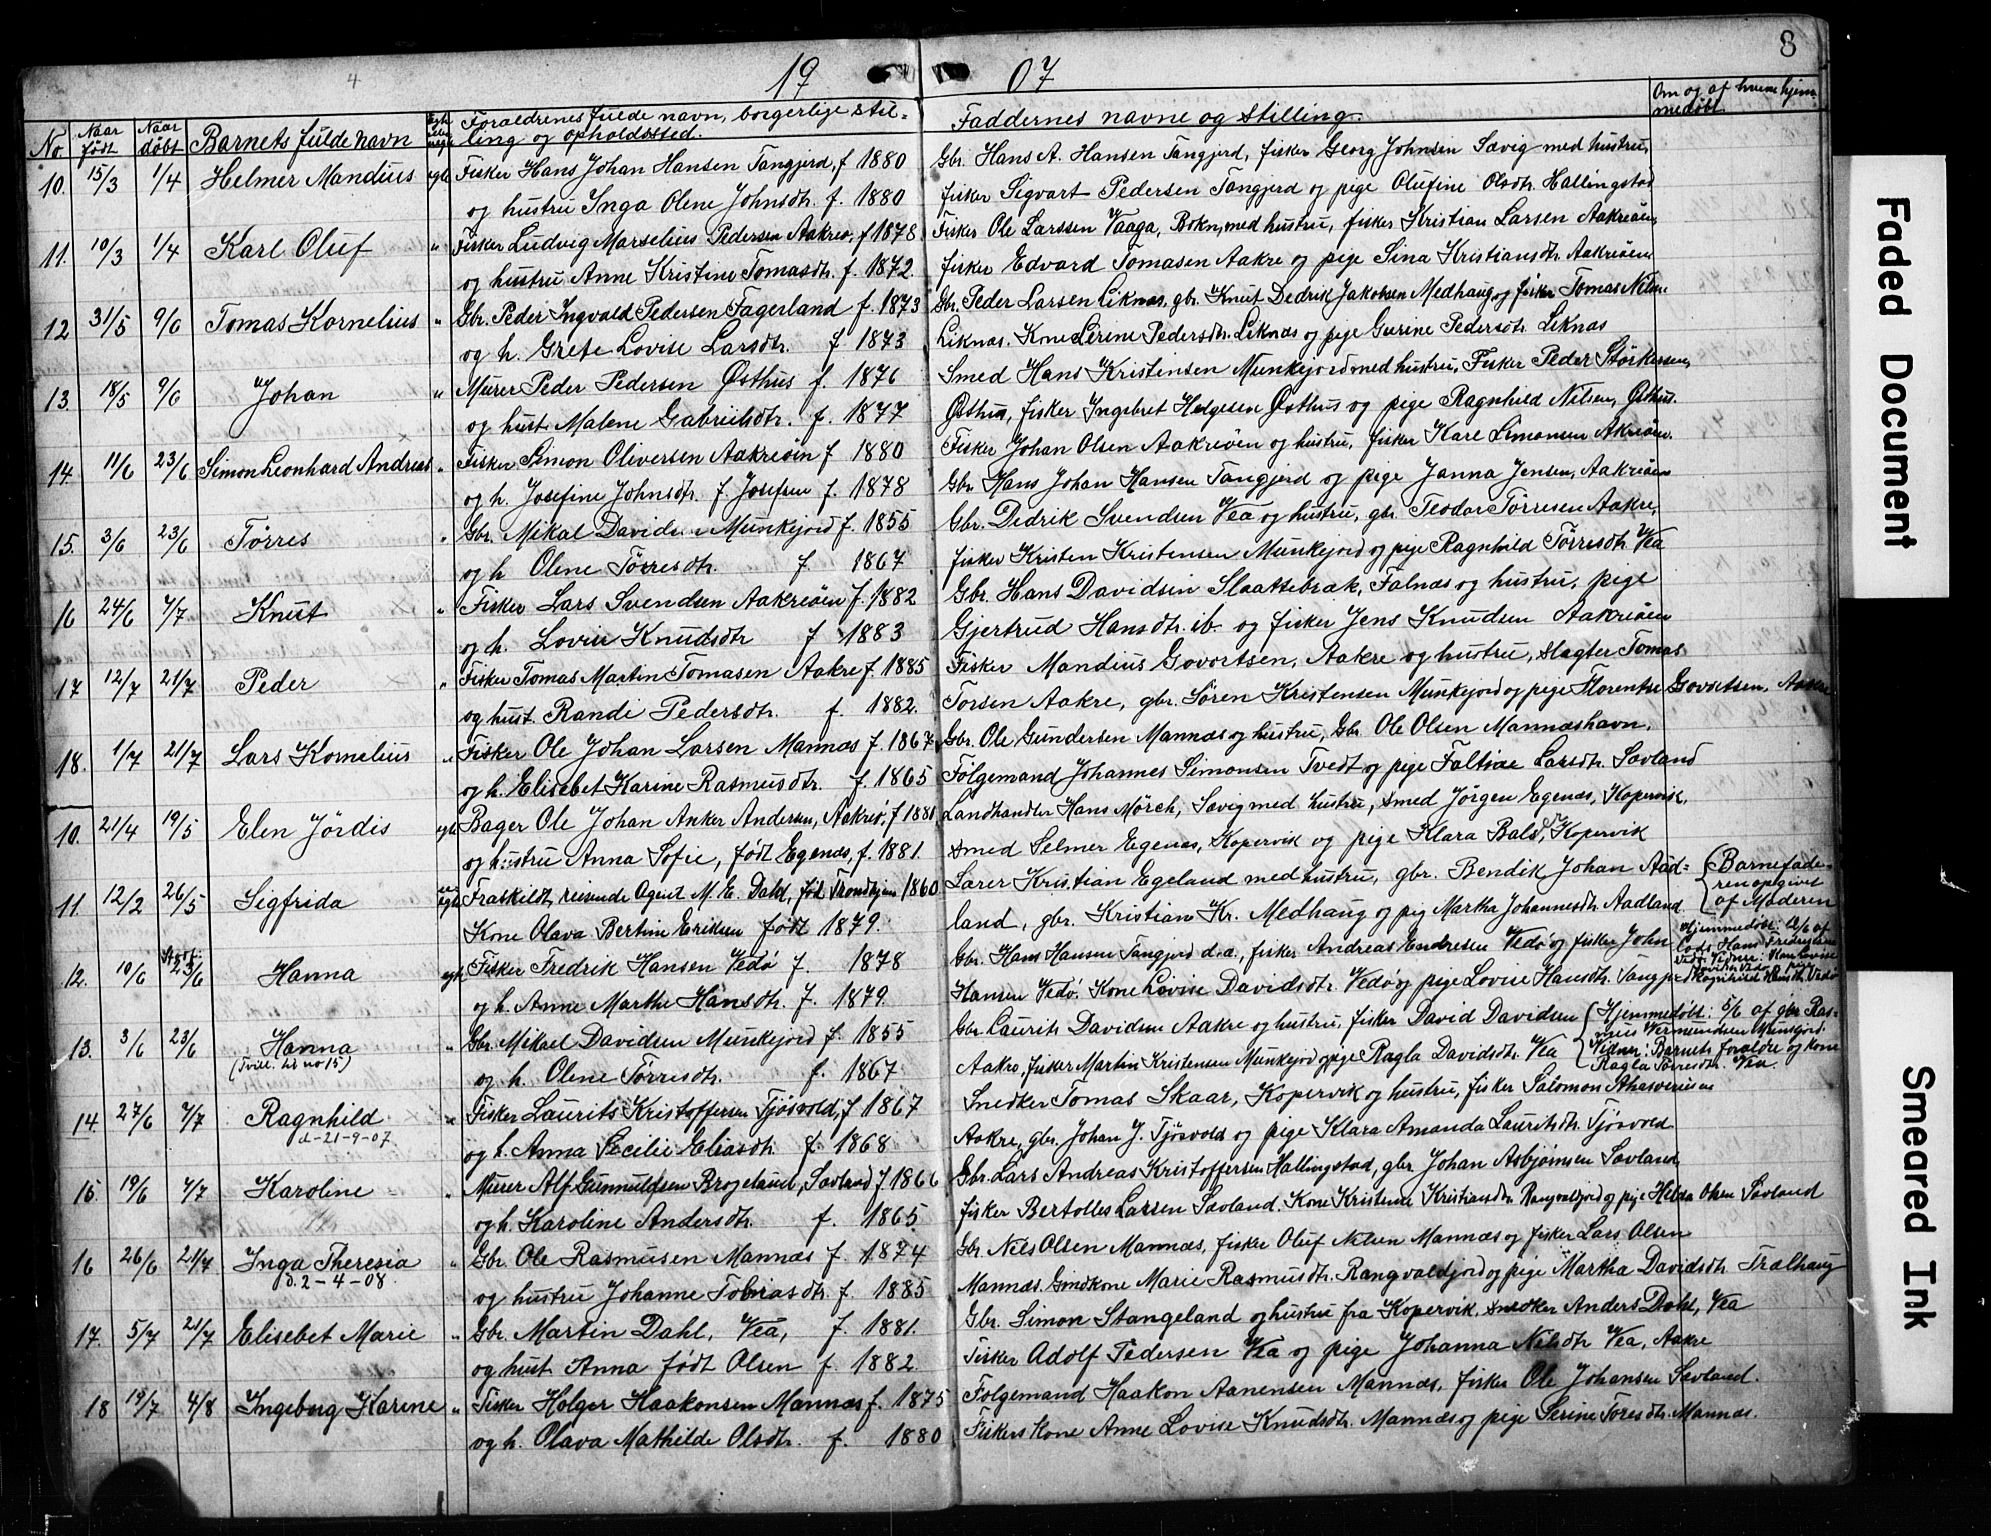 4
19 07
8
No
Naar født
Naar døbt
Barnets fulde navn
Forældrenes fulde navn, borgerlige stil-
ling og opholdssted.
Faddernes navne og stilling.
Om og af hvem hjem-
medøbt.
10. 15/3 1/4 Helmer Mandius egte Fisker Hans Johan Hansen Tangjerd, f 1880 Gbr. Hans A. Hansen Tangjerd, fisker Georg Johnsen Sævig med hustru,
og hustru Inga Olene Johnsdtr. f. 1880 fisker Sigvart Pedersen Tangjerd og pige Olufine Olsdtr. Hallingstad
11. 10/3 1/4 Karl Oluf " Fisker Ludvig Marselius Pedersen Aakre, f 1878 Fisker Ole Larssen Vaaga, Bokn, med hustru, fisker Kristian Larsen Aakreøen,
og hustru Anne Kristine Tomasdtr. f. 1872. fisker Edvard Tomasen Aakre og pige Sina Kristiansdtr. Aakreøen
12 31/5 9/6 Tomas Kornelius " Gbr. Peder Ingvald Pedersen Fagerland f. 1873 Gbr. Peder Larsen Liknæs, gbr. Knut Dedrik Jakobsen Medhaug og fisker Tomas Nilsen
og h. Grete Lovise Larsdtr. f 1873 Liknæs. Kone Serine Pedersdtr. Liknæs og pige Gurine Pedersdtr. Liknæs
13. 18/5 9/6 Johan " Murer Peder Pedersen Østhus f. 1876 Smed Hans Kristensen Munkejord med hustru, Fisker Peder Størkersen,
og hust. Malene Gabrielsdtr. f. 1877 Østhus, fisker Ingebret Helgesen Østhus og pige Ragnhild Nilsen, Østhus.
14. 11/6 23/6 Simon Leonhard Andreas " Fisker Simon Oliversen Aakreøen f 1880 Fisker Johan Olsen Aakreøen og hustru, fisker Karl Simonsen Akreøen.
og h. Josefine Johnsdtr. f Josefsen f. 1878 Gbr. Hans Johan Hansen Tangjerd og pige Janna Jensen, Aakreøen
15. 3/6 23/6 Tørres " Gbr. Mikal Davidsen Munkejord f. 1855 Gbr. Dedrik Svendsen Vea og hustru, gbr. Teodor Tørresen Aakre,
og h Olene Tørresdtr. f. 1867 fisker Kristen Kristensen Munkejord og pige Ragnhild Tørresdtr. Vea
16 24/6 7/7 Knut " Fisker Lars Svendsen Aakreøen f. 1882 Gbr. Hans Davidsen Slaattebrak, Falnæs og hustru, pige
og h. Lovise Knudsdtr f 1883 Gjertrud Hansdtr. ib. og fisker Jens Knudsen Aakreøen
17 12/7 21/7 Peder " Fisker Tomas Martin Tomasen Aakre f. 1885 Fisker Mandius Govortsen, Aakre og hustru, slagter Tomas
og hust. Randi Pedersdtr. f. 1882. Torsen Aakre, gbr. Søren Kristensen Munkejord og pige Florentse Govortsen, Aakre
18. 1/7 21/7 Lars Kornelius " Fisker Ole Johan Larsen Mannæs f. 1867 Gbr. Ole Gundersen Mannæs og hustru, Gbr. Ole Olsen Mannæshavn,
og h. Elisebet Karine Rasmusdtr. f. 1865 Følgemand Johannes Simonsen Tvedt og pige Faltine Larsdtr. Sævland
10. 21/4 19/5 Elen Jørdis egte Bager Ole Johan Anker Andersen, Aakre, f 1881, Landhandler Hans Mørch, Sævig med hustru, smed Jørgen Egenæs, Kopervik,
og hustru Anna Sofie, født Egenæs, f. 1881. smed Selmer Egenæs, Kopervik og pige Klara Bals, Kopervik
11. 12/2 26/5 Sigfrida uegte Fraskildt, reisende Agent M. E. Dahl, fød. Trondhjem 1860 Lærer Kristian Egeland med hustru, gbr. Bendik Johan Aad- Barnefade-
ren opgivet
Kone Olava Bertine Eriksen født 1879. land, gbr. Kristian Kr. Medhaug og pig Martha Johannesdtr Aadland af Moderen
12. 10/6 23/6 Hanna egte Fisker Fredrik Hansen Vedø f. 1878 Gbr. Hans Hansen Tangjerd d.æ., fisker Andreas Endresen Vedø og fisker John
og h. Anne Marthe Hansdtr. f. 1879. Hansen Vedø, Kone Lovise Davidsdtr. Vedø og pige Lovise Hansdtr. Tang
13. 3/6 23/6 Hanna " Gbr. Mikael Davidsen Munkejord f. 1855 Gbr. Laurits Davidsen Aakre og hustru, fisker David Davidsen Hjemmedøbt: 5/6 af gbr. Ras-
mus Vermundsen Munkjord.
(Tvill. til no 15) og h. Olene Tørresdtr. f. 1867 Aakre, fisker Martin Kristensen Munkejord og pige Ragla Davidsdtr. Vea Vidner: Barnets forældre og kone
Ragla Tørresdtr. Vea.
14. 27/6 7/7 Ragnhild " Fisker Laurits Kristoffersen Tjøsvold, f 1867 Snedker Tomas Skaar, Kopervik og hustru, fisker Salomon Ahasverusen
d-21-9-07 og h. Anna Cecilie Eliasdtr f. 1868 Aakre, gbr. Johan J. Tjøsvold og pige Klara Amanda Lauritsdtr. Tjøsvold
15. 19/6 7/7 Karoline " Murer Alf Gunnuldsen Brogeland, Sævland f 1866 Gbr. Lars Andreas Kristoffersen Hallingstad, gbr. Johan Asbjørnsen Sævland,
og h. Karoline Andersdtr. f. 1865 fisker Bertolles Larsen Sævland. Kone Kristene Kristiansdtr. Rangvaldjord og pige Helda Olsen Sævland
16 26/6 21/7 Inga Theresia " Gbr. Ole Rasmusen Mannæs f. 1874 Gbr. Nels Olsen Mannæs, fisker Oluf Nelsen Mannæs og fisker Lars Olsen
d. 2-4-08. og hustru Johanne Tobiasdtr. f. 1885 Mannæs. Gmdkone Marie Rasmusdtr. Rangvaldjord og pige Martha Davidsdtr Trælhaug
17. 5/7 21/7 Elisebet Marie " Gbr. Martin Dahl, Vea, f. 1881. Gbr. Simon Stangeland og hustru fra Kopervik, snedker Anders Dahl, Vea
og hust Anna født Olsen f. 1882. Fisker Adolf Pedersen Vea og pige Johanna Nelsdtr Vea, Aakre
18 19/7 4/8 Ingeborg Karine " Fisker Holger Haakonsen Mannæs f. 1875 Følgemand Haakon Aanensen Mannæs, fisker Ole Johansen Sævland.
og h. Olava Mathilde Olsdtr. f. 1880 Fiskers kone Anne Lovise Knudsdtr. Mannæs og pige Serine Toresdtr. Mannæs.
Faded Document
Smeared Ink